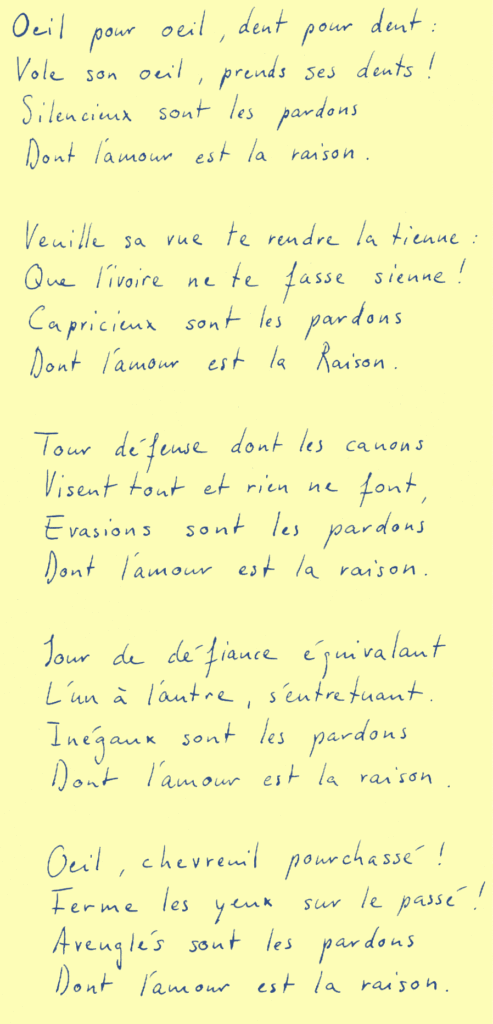 Oeil pour oeil, dent pour dent :
Vole son oeil, prends ses dents !
Silencieux sont les pardons
Dont l'amour est la raison.
Veuille sa vue te rendre la tienne :
Que l'ivoire ne te fasse sienne !
Capricieux sont les pardons
Dont l'amour est la Raison.
Tour défense dont les canons
Visent tout et rien ne font,
Evasions sont les pardons
Dont l'amour est la raison.
Jour de défiance équivalant
L'un à l'autre, s'entretuant.
Inégaux sont les pardons
Dont l'amour est la raison.
Oeil, chevreuil pourchassé !
Ferme les yeux sur le passé !
Aveuglés sont les pardons
Dont l'amour est la raison.